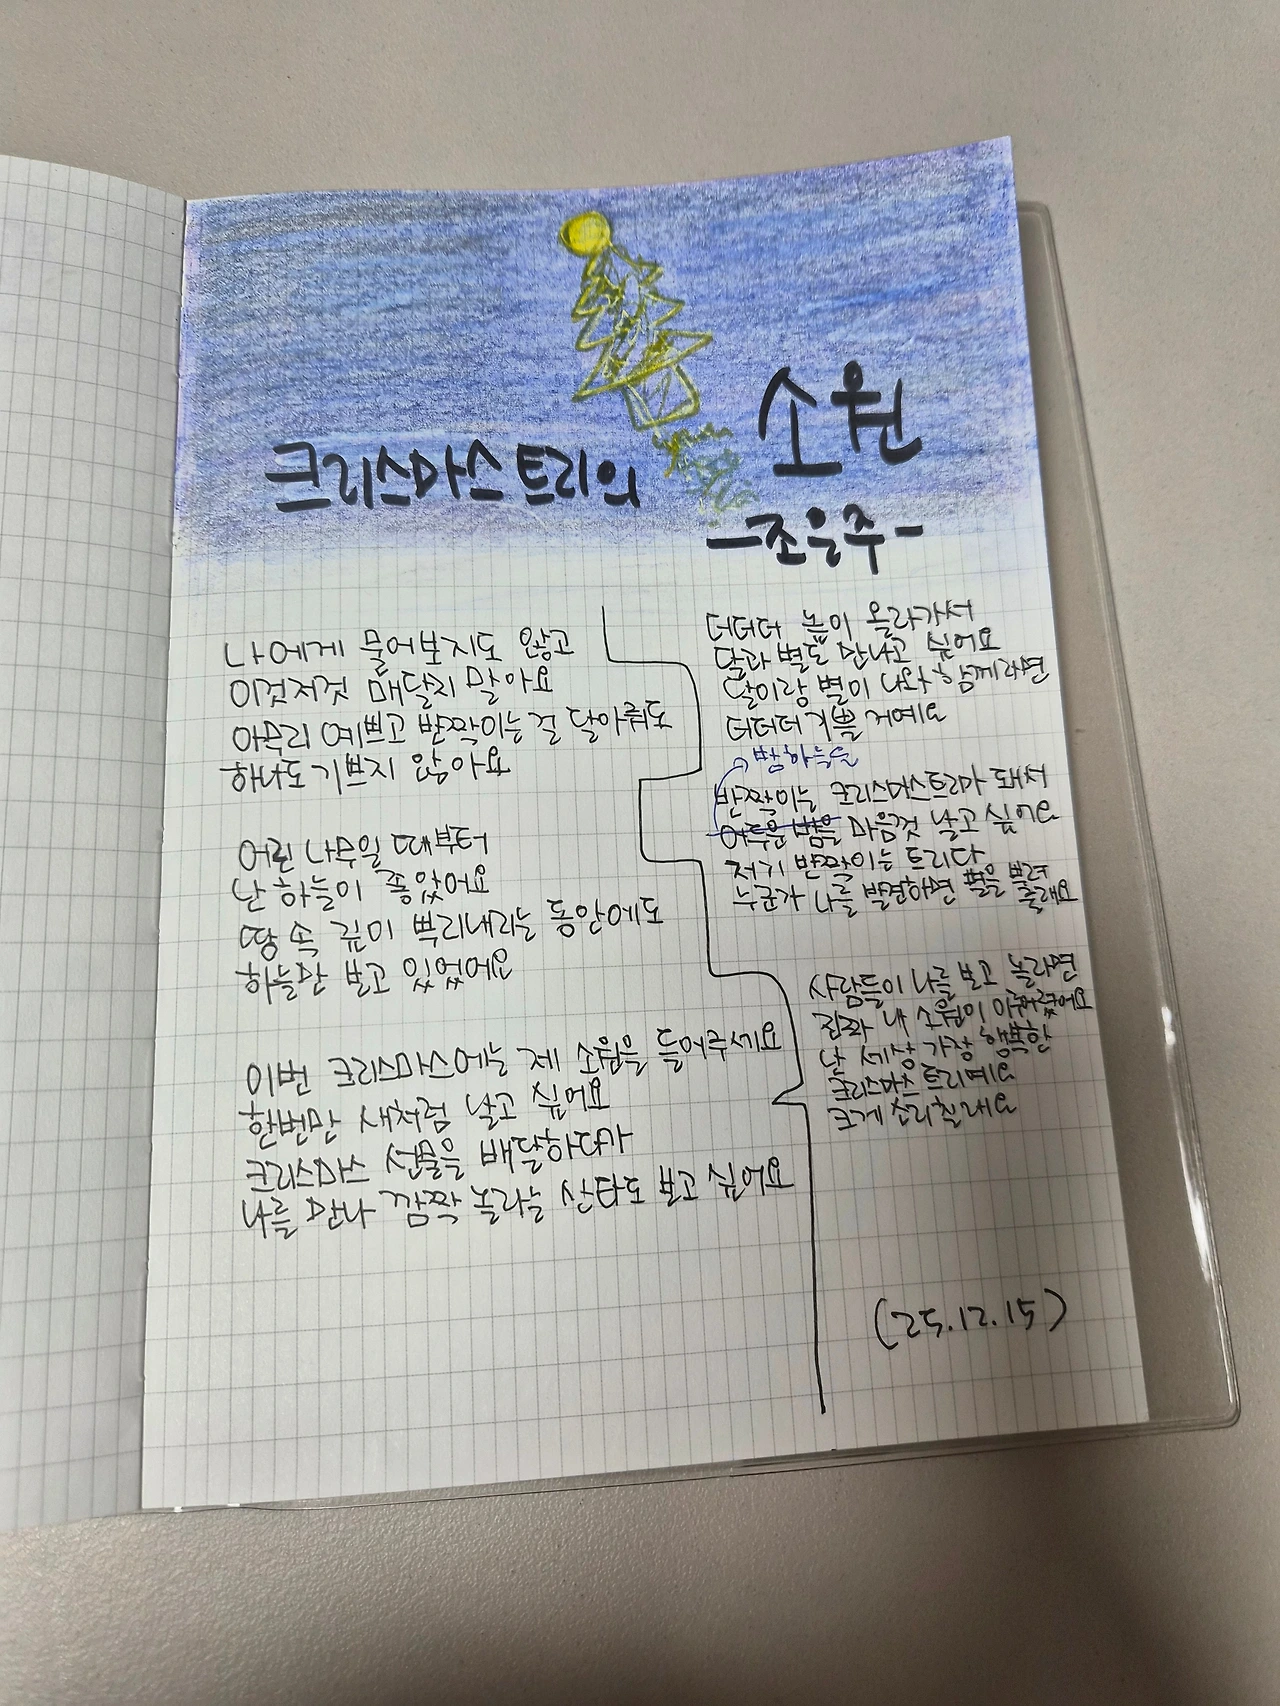 크리스마스 트리의
소원
-조은주-
나에게 물어보지도 않고
이것저것 매달지 말아요
아무리 예쁘고 반짝이는 걸 달아줘도
하나도 기쁘지 않아요
어린 나무일 때부터
난 하늘이 좋았어요
땅 속 깊이 뿌리내리는 동안에도
하늘만 보고 있었어요
이번 크리스마스에는 제 소원을 들어주세요
한번만 새처럼 날고 싶어요
크리스마스 선물을 배달하다가
나를 만나 깜짝 놀라는 산타도 보고 싶어요
더더더 높이 올라가서
달과 별도 만나고 싶어요
달이랑 별이 나와 함께라면
더더더 기쁠 거예요
밤하늘을
반짝이는 크리스마스트리가 돼서
어두운 밤을 마음껏 날고 싶어요
저기 반짝이는 트리다
누군가 나를 발견하면 별을 뿌려
줄래요
사람들이 나를 보고 놀라면
진짜 내 소원이 이루어졌어요
난 세상 가장 행복한
크리스마스 트리예요
크게 소리칠래요
(25.12.15)